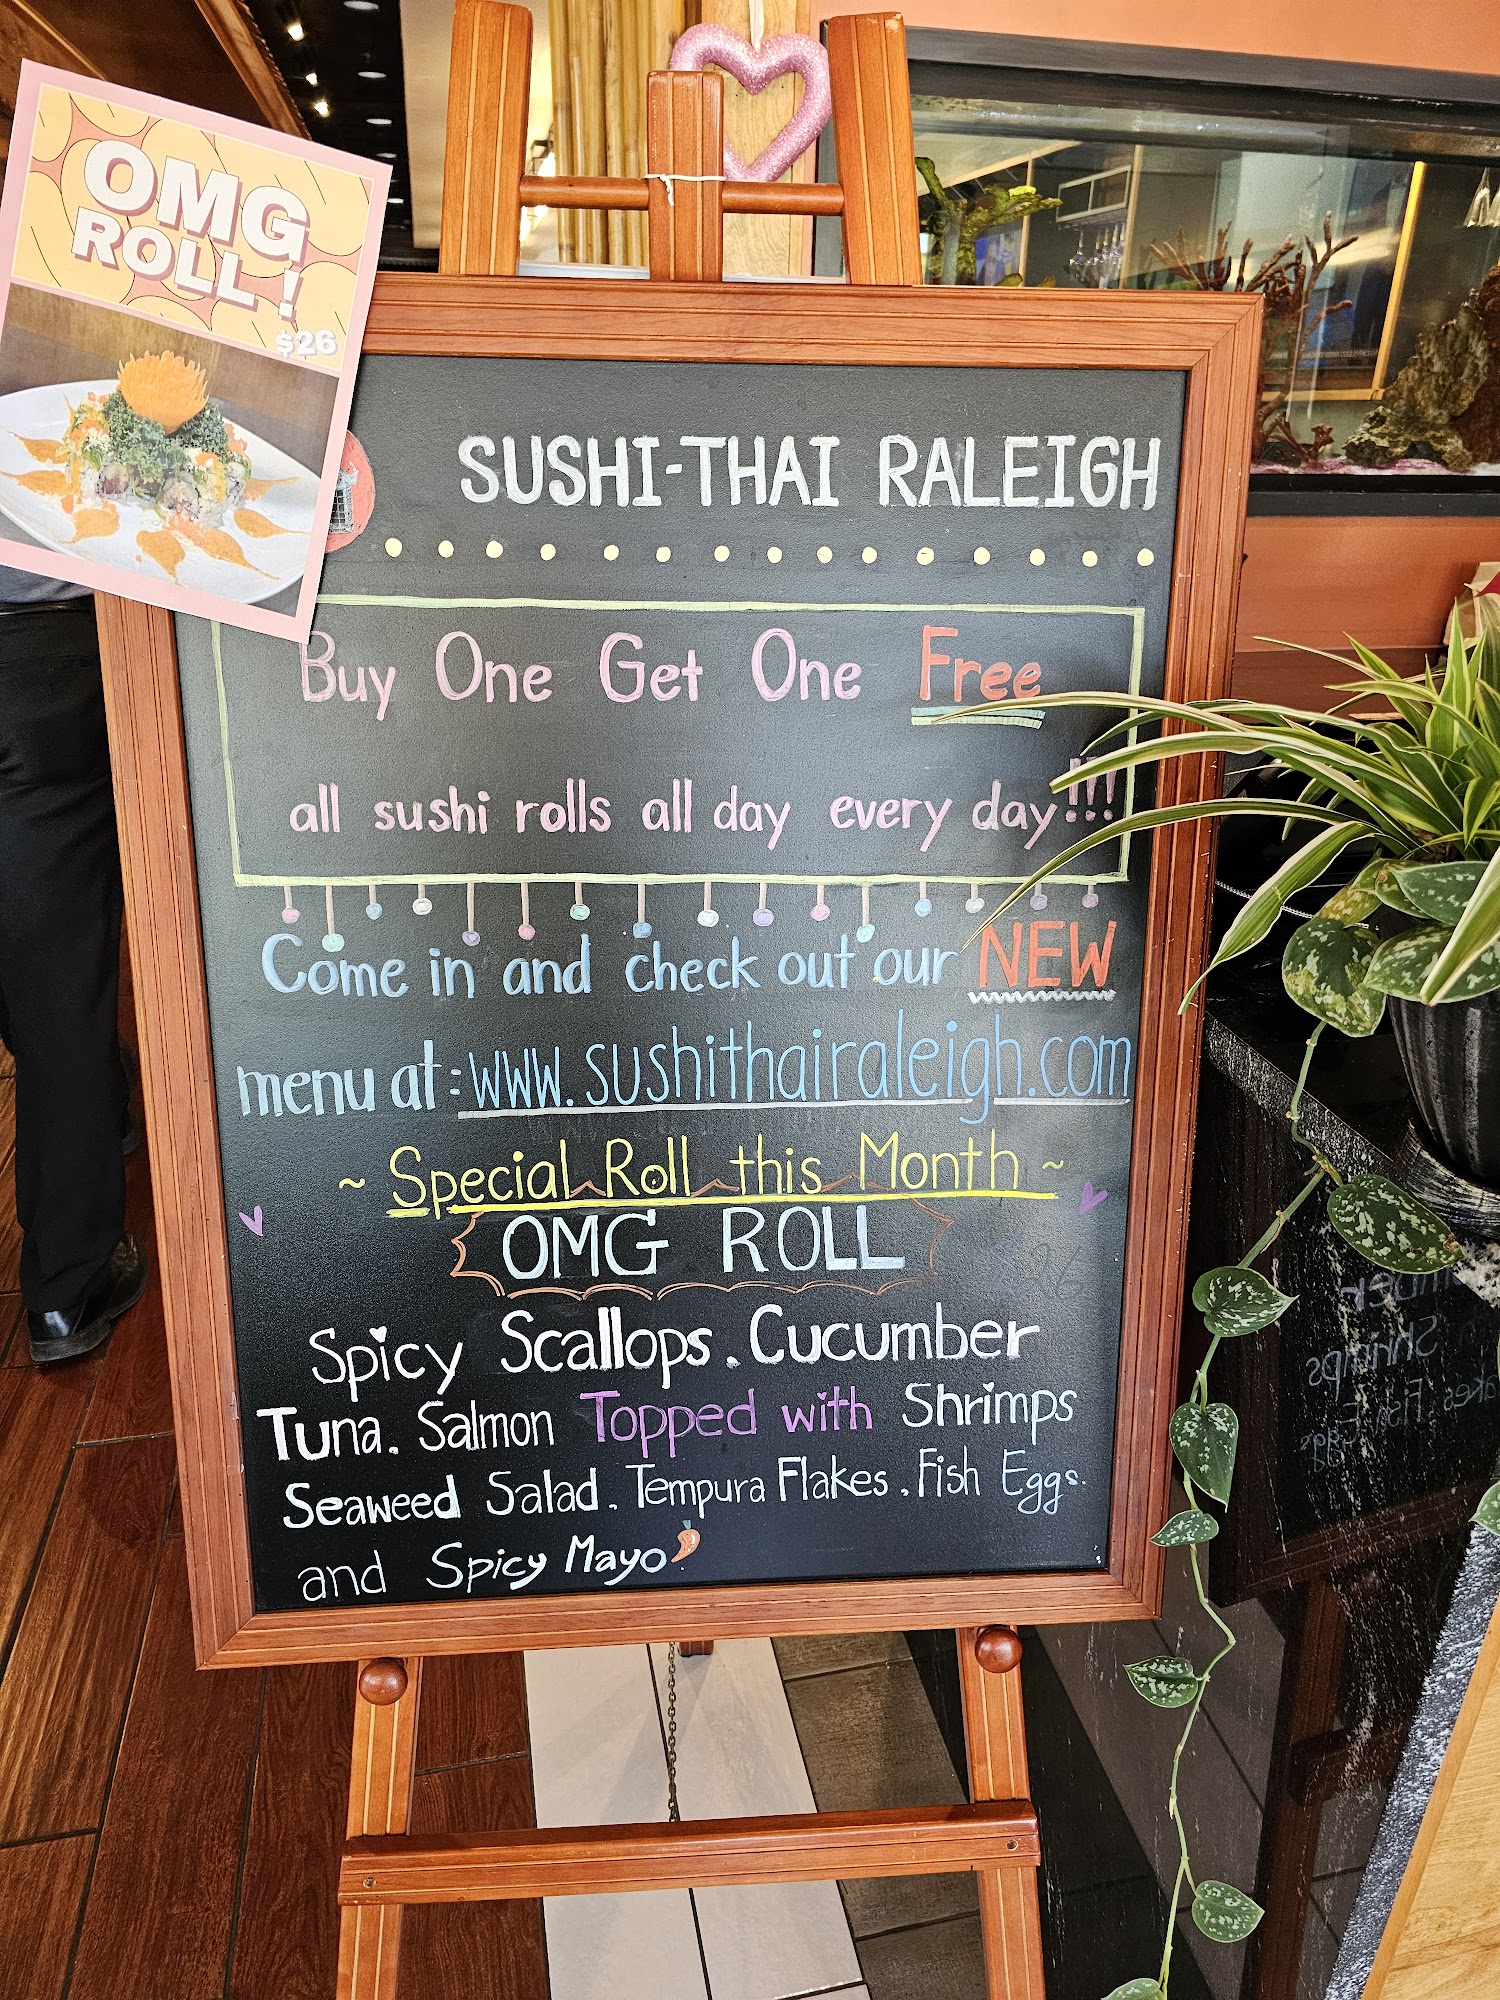 OMG
ROLL !
$26
SUSHI-THAI RALEIGH
Buy One Get One Free
all sushi rolls all day every day!!!
Come in and check out our NEW
menu at: www.sushithairaleigh.com
~ Special Roll this Month ~
OMG ROLL
Spicy Scallops. Cucumber
Tuna. Salmon Topped with Shrimps
Seaweed Salad. Tempura Flakes. Fish Eggs.
and Spicy Mayo